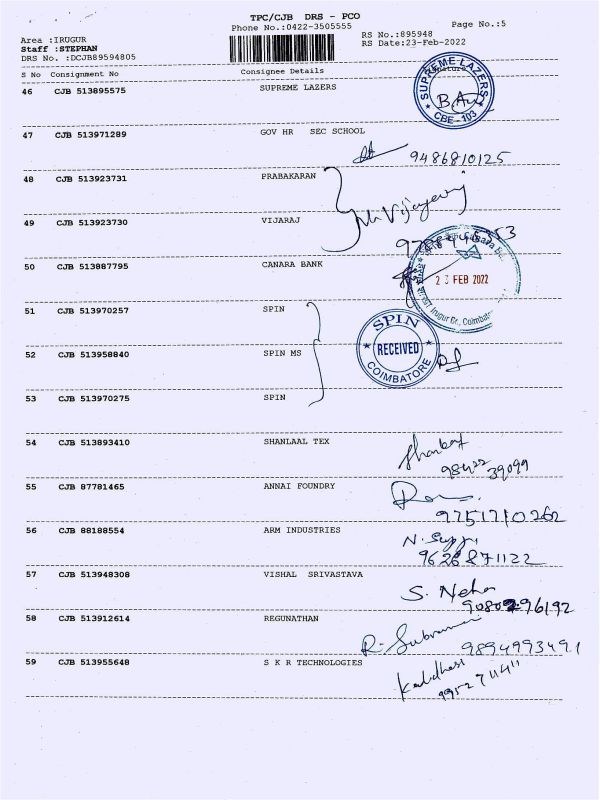 TPC/CJB DRS - PCO
Phone No.:0422-3505555
Page No.:5
Area :IRUGUR
Staff :STEPHAN
DRS No. :DCJB89594805
RS No.:895948
RS Date:23-Feb-2022
S No Consignment No Consignee Details
46 CJB 513895575 SUPREME LAZERS
SUPREME LAZERS
CBE-103
47 CJB 513971289 GOV HR SEC SCHOOL
9486810125
48 CJB 513923731 PRABAKARAN
49 CJB 513923730 VIJARAJ
50 CJB 513887795 CANARA BANK
23 FEB 2022
Irugur Br., Coimbatore
51 CJB 513970257 SPIN
SPIN
RECEIVED
COIMBATORE
52 CJB 513958840 SPIN MS
53 CJB 513970275 SPIN
54 CJB 513893410 SHANLAAL TEX
98422 39099
55 CJB 87781465 ANNAI FOUNDRY
9751710262
56 CJB 88188554 ARM INDUSTRIES
9626871122
57 CJB 513948308 VISHAL SRIVASTAVA
S. Neha
58 CJB 513912614 REGUNATHAN
9894993491
59 CJB 513955648 S K R TECHNOLOGIES